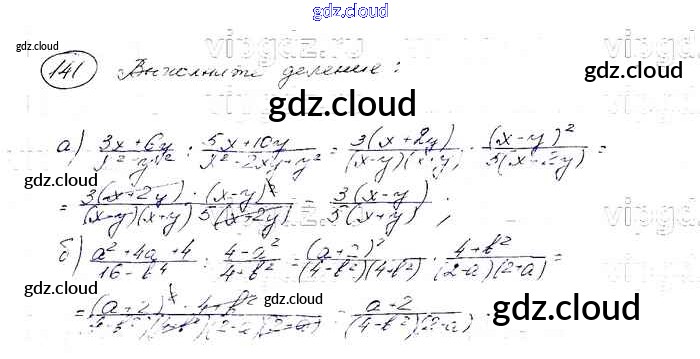 gdz.cloud
gdz.cloud
141 Выполните деление:
gdz.cloud
gdz.cloud
а) (3x+6y)/(x²-y²) : (5x+10y)/(x²-2xy+y²) = 3(x+2y)/((x-y)(x+y)) · (x-y)²/(5(x+2y)) =
gdz.cloud
= 3(x+2y)·(x-y)²/((x-y)(x+y) 5(x+2y)) = 3(x-y)/(5(x+y));
gdz.cloud
б) (a²+4a+4)/(16-b⁴) : (4-a²)/(4+b²) = (a+2)²/((4-b²)(4+b²)) · (4+b²)/((2-a)(2+a)) =
gdz.cloud
gdz.cloud
= (a+2)²·4+b²/((4-b²)(4+b²)(2-a)(2+a)) = (a+2)/((4-b²)(2-a)).
gdz.cloud